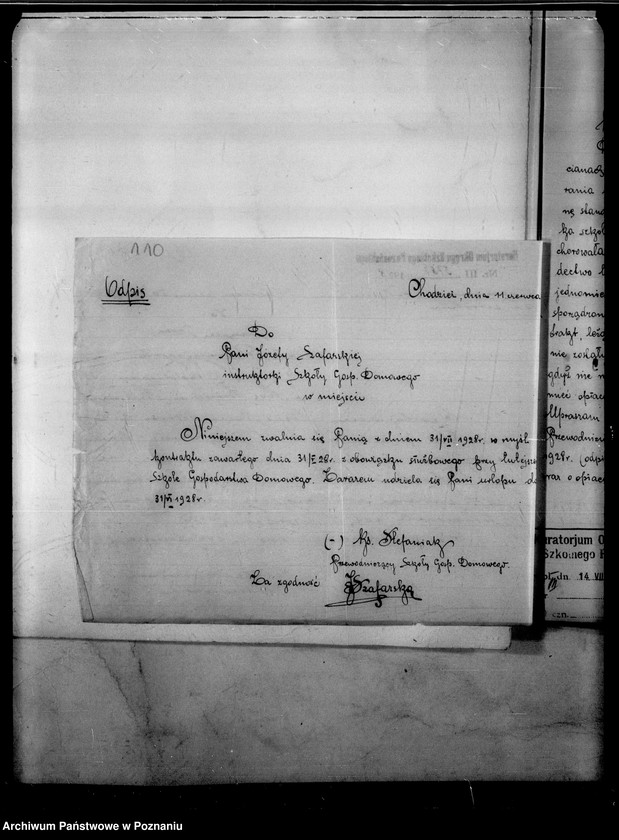 110
Odpis
Chodzież, dnia 11 czerwca
Do
Pani Józefy Szafarskiej
instruktorki Szkoły Gosp. Domowego
w miejscu
Niniejszem zwalnia się Panią z dniem 31/VII 1928r. w myśl
kontraktu zawartego dnia 31/I 28r. z obowiązku służbowego przy tutejsze
Szkole Gospodarstwa Domowego. Zarazem udziela się Pani urlopu do
31/VII 1928r.
(-) Ks. Stefaniak
Przewodniczący Szkoły Gosp. Domowego.
Za zgodność JSzafarska
rania
ka szkol
chorowała
dectwo
jednomie
sporządzon
nie został
gdyż nie
Upraszam
Przewodnic
1928r. (odpi
uratorjum O
Szkolnego P
dn. 14 VII
Archiwum Państwowe w Poznaniu